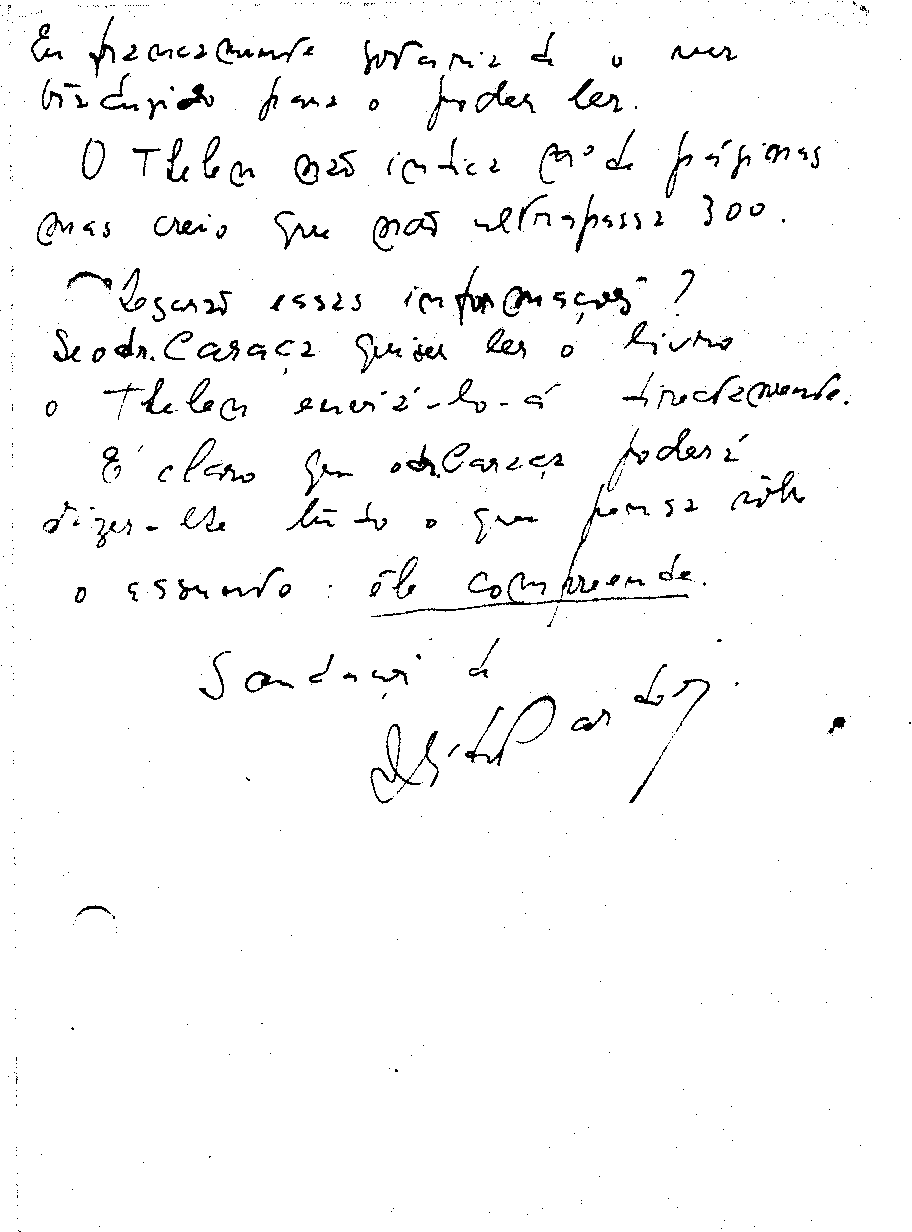 Eu francamente gostaria de o ver
traduzido para o poder ler.
O Thelen não indica nº de páginas
mas creio que não ultrapassa 300.
essas informações?
Se o dr. Caraça quiser ler o livro
o Thelen enviá-lo-á directamente.
É claro que o dr. Caraça poderá
dizer-lhe tudo o que pensa sôbre
o assunto: êle compreende.